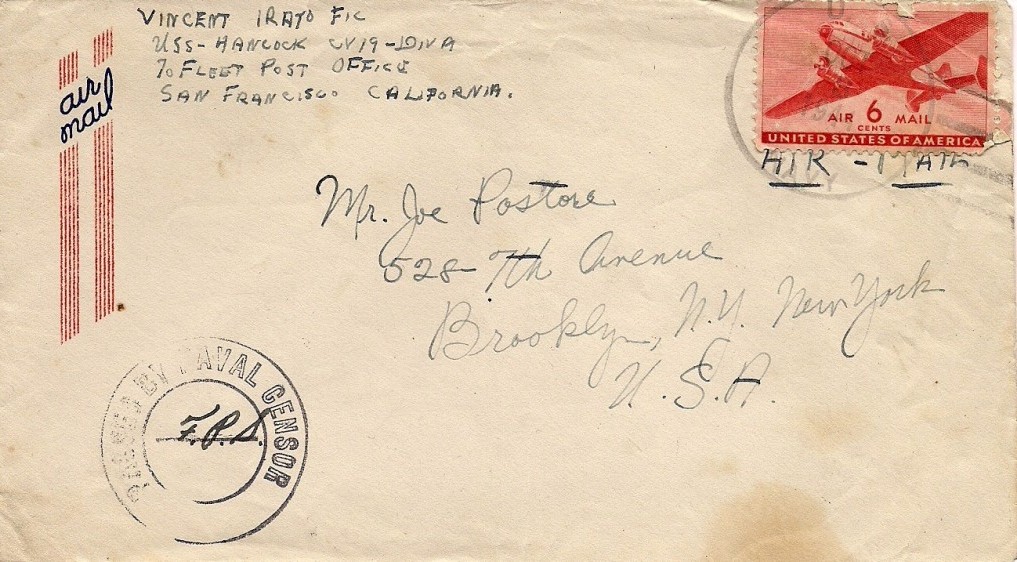 VINCENT IRATO F1C
USS-HANCOCK CV19-DIV A
% FLEET POST OFFICE
SAN FRANCISCO CALIFORNIA.
air
mail
AIR 6 MAIL
CENTS
UNITED STATES OF AMERICA
AIR - MAIL
Mr. Joe Pastore
528-7th Avenue
Brooklyn, N.Y. New York
U.S.A.
PASSED BY NAVAL CENSOR
F.P.S.